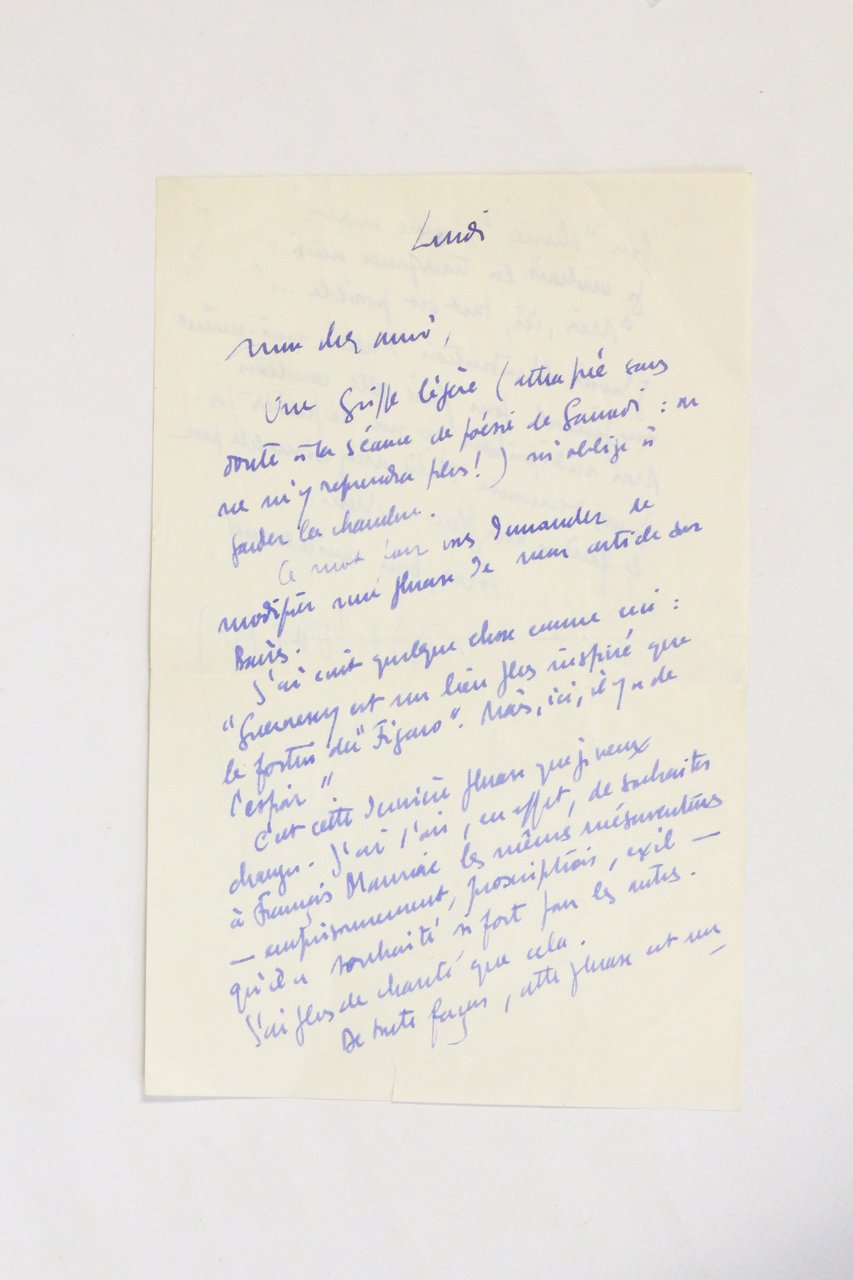 Lundi
Mon cher ami,
Une grippe légère (attrapée sans
doute à la séance de poésie de Samedi : on
ne m'y reprendra plus !) m'oblige à
garder la chambre.
Ce mot pour vous demander de
modifier une phrase de mon article sur
Barrès.
J'ai écrit quelque chose comme ceci :
"Guernesey est un lieu plus inspiré que
le "Figaro". Mais, ici, il y a de
l'espoir"
C'est cette dernière phrase que je veux
changer. J'ai l'air, en effet, de souhaiter
à François Mauriac les mêmes mésaventures
— emprisonnement, proscription, exil —
qu'il a souhaité si fort pour les autres.
J'ai plus de charité que cela.
De toute façon, cette phrase est un